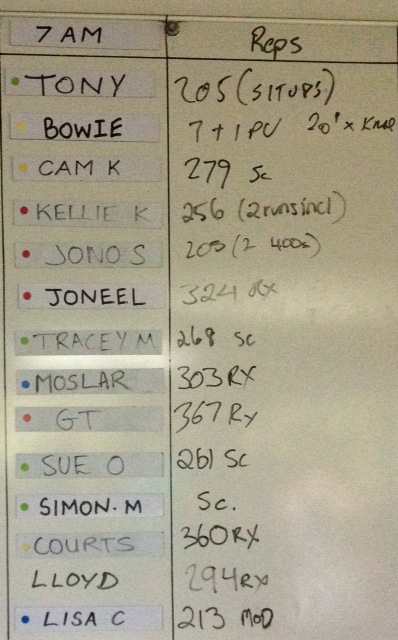 7 AM Reps
TONY 205 (SITUPS)
BOWIE 7 + 1 PU
CAM K 279 Sc
KELLIE K 256 (2 runs incl)
JONO S 205 (2 400s)
JONEEL 324 RX
TRACEY M 268 Sc
MOSLAR 303 RX
GT 367 Rx
SUE O 261 Sc
SIMON. M Sc.
COURTS 360 RX
LLOYD 294 RX
LISA C 213 MOD